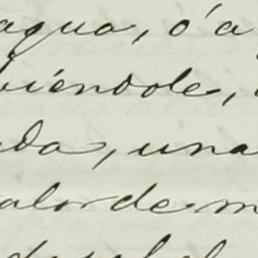 agua, ó a
biéndole,
da, una
alor de m